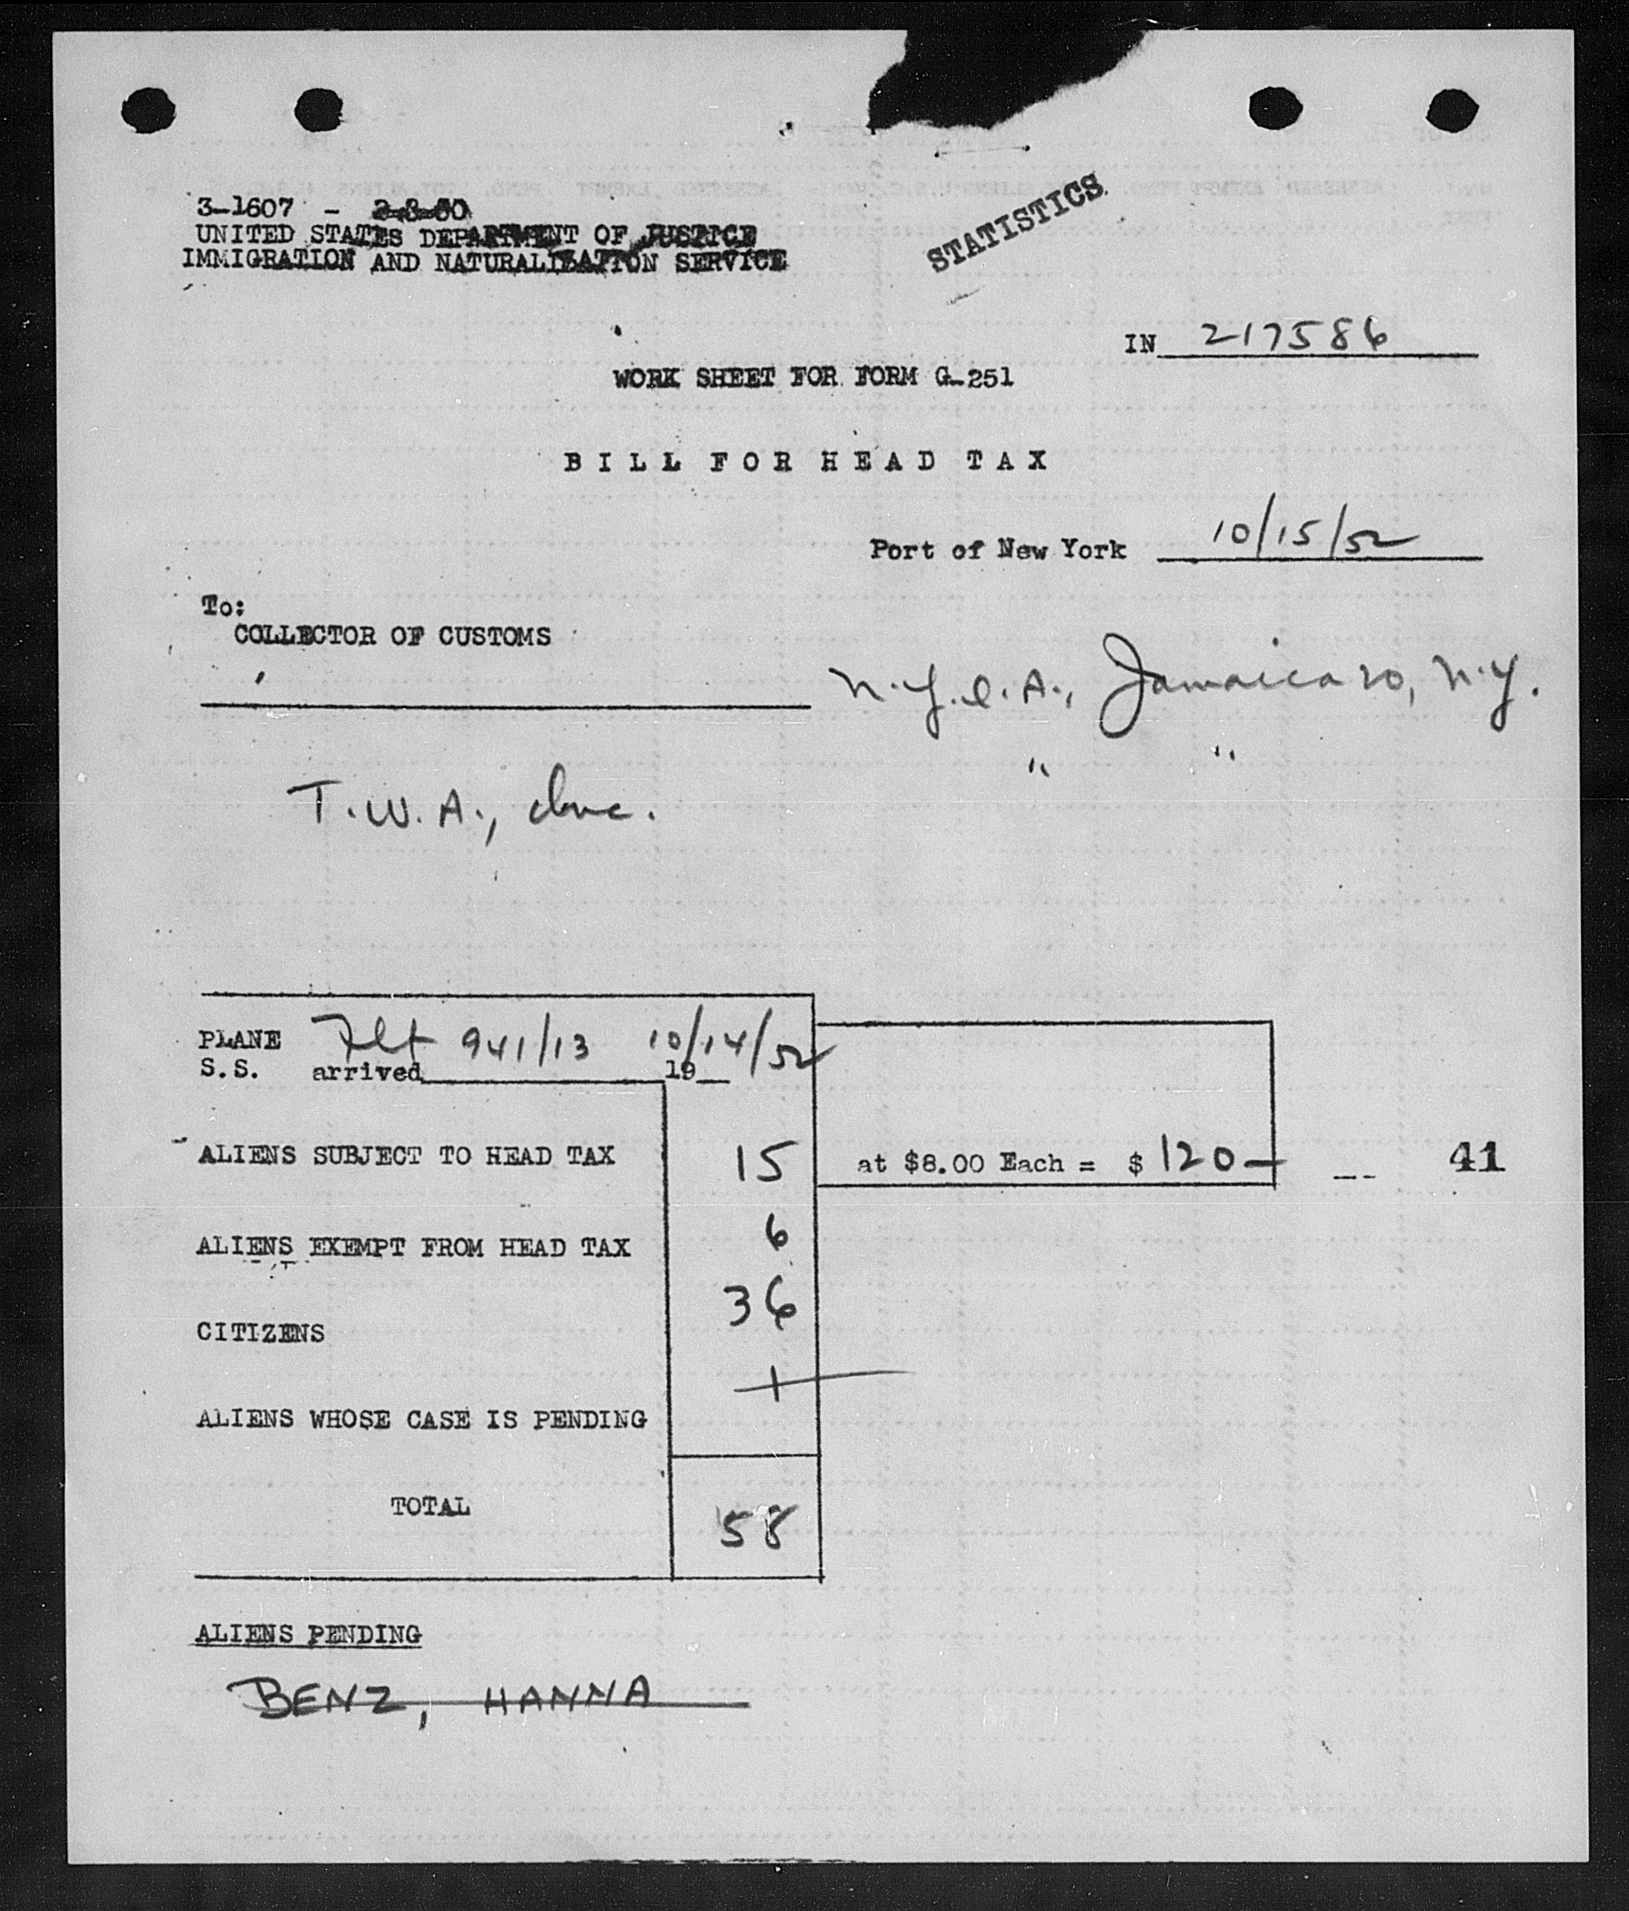 3-1607 - 2-8-50
UNITED STATES DEPARTMENT OF JUSTICE
IMMIGRATION AND NATURALIZATION SERVICE
STATISTICS
IN 217586
WORK SHEET FOR FORM G-251
BILL FOR HEAD TAX
Port of New York 10/15/52
To:
COLLECTOR OF CUSTOMS
N.Y.I.A., Jamaica 20, N.Y.
" "
T.W.A., Inc.
PLANE Flt 941/13 10/14/52
S.S. arrived 19
ALIENS SUBJECT TO HEAD TAX 15 at $8.00 Each = $ 120— -- 41
ALIENS EXEMPT FROM HEAD TAX 6
CITIZENS 36
ALIENS WHOSE CASE IS PENDING 1
TOTAL 58
ALIENS PENDING
BENZ, HANNA